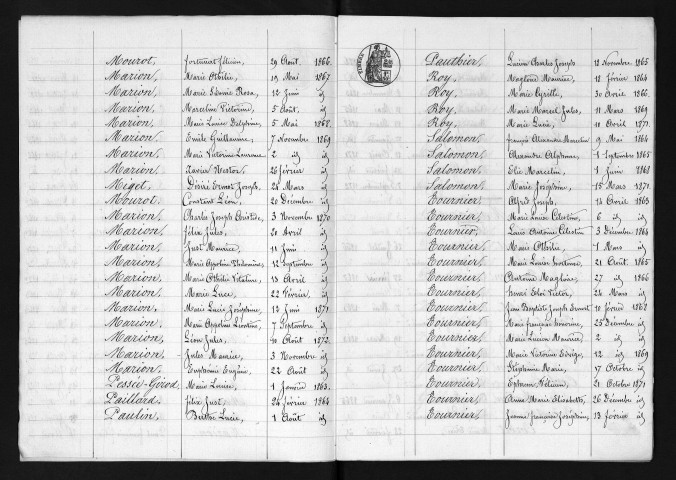 Mourot, fortunat félicien, 29 Août 1866.
Marion, Marie Othilie, 19 Mai 1867.
Marion, Marie Léonie Rosa, 12 Juin id
Marion, Marcelin Victorine, 5 Août, id
Marion, Marie Louise Delphine, 5 Mai 1868.
Marion, Emile Guillaume, 7 Novembre 1869
Marion, Marie Victorine Laurence 2 id id
Marion, Xavier Nestor, 26 février id
Miget, Désiré Ernest Joseph, 24 Mars id
Mourot, Constant Léon, 20 Décembre id
Marion, Charles Joseph Aristide, 3 Novembre 1870.
Marion, félix Jules, 20 Avril id
Marion, Just Maurice, 11 Juin id
Marion, Marie Appoline 12 Septembre id
Marion, Marie Othilie Vitaline, 13 Avril id
Marion, Marie Lucie, 22 Février, id
Marion, Marie Lucie Joséphine, 12 Juin 1871.
Marion, Marie Appoline Léontine, 7 Septembre id
Marion, Léon Jules, 10 Août 1872.
Marion, Jules Maurice, 3 Novembre id
Marion, Euphémie Eugénie, 22 Août id
Pessée-Girod, Marie Louise, 1 Janvier 1863.
Paillard, félix Just, 24 février 1864
Paulin, Berthe Lucie, 1 Août id
Pauthier, Lucien Charles Joseph 12 Novembre 1865
Roy, Magloire Maurice, 12 février 1864
Roy, Marie Cyrille, 30 Avril 1866.
Roy, Marie Marcel Jules, 11 Mars 1869
Roy, Marie Lucie, 11 Avril 1871.
Salomon, françois Alexandre Marcelin 9 Mai 1864
Salomon, Alexandre Alphonse, 1 Septembre 1865
Salomon, Elie Marcelin, 1 Juin 1868
Salomon, Marie Joséphine, 15 Mars 1871.
Tournier, Alfred Joseph, 14 Avril 1863
Tournier, Marie Louise Célestine, 6 id id
Tournier, Louis Antoine Célestin 3 Décembre 1864
Tournier, Marie Othilie, 1 Mars id
Tournier, Marie Louise 21 Août 1865
Tournier, Antoine Magloire, 27 id 1866
Tournier, henri Eloi Victor, 24 Mars id
Tournier, Jean Baptiste Joseph Ernest 10 février 1868
Tournier, Marie françoise honorine, 25 Décembre id
Tournier, Marie Lucien Maurice, 2 id id
Tournier, Marie Victorine Edwige, 12 id 1869
Tournier, Stéphanie Marie, 17 Octobre id
Tournier, 21 Octobre 1871
Tournier, Anne Marie Elisabeth, 26 Décembre id
Tournier, Jeanne françoise Joséphine, 13 février id